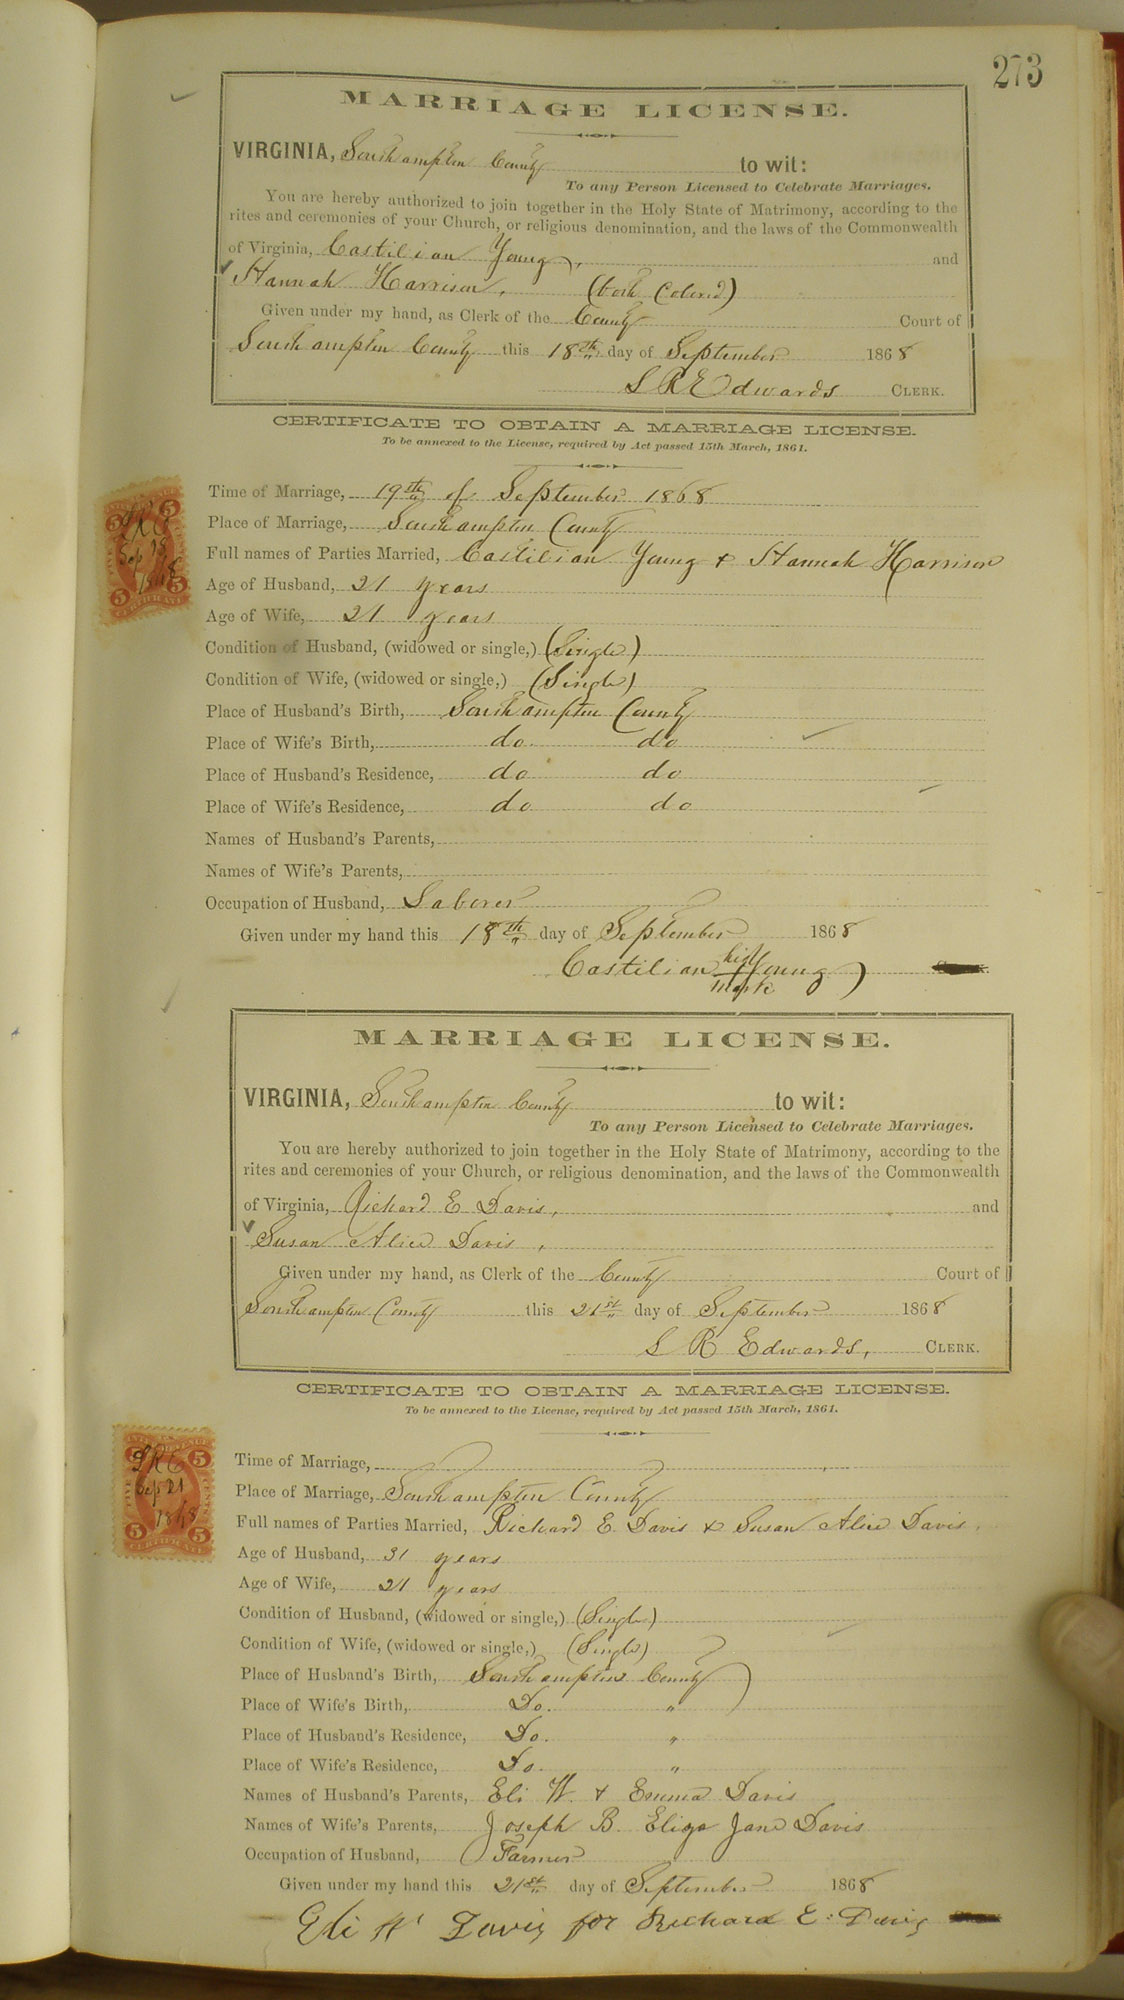 273
MARRIAGE LICENSE.
VIRGINIA, Southampton County to wit:
To any Person Licensed to Celebrate Marriages.
You are hereby authorized to join together in the Holy State of Matrimony, according to the
rites and ceremonies of your Church, or religious denomination, and the laws of the Commonwealth
of Virginia, Castilian Young, and
Hannah Harrison, (both Colored)
Given under my hand, as Clerk of the County Court of
Southampton County this 18th day of September 1868
L R Edwards CLERK.
CERTIFICATE TO OBTAIN A MARRIAGE LICENSE.
To be annexed to the License, required by Act passed 15th March, 1861.
Time of Marriage, 19th of September 1868
Place of Marriage, Southampton County
Full names of Parties Married, Castilian Young & Hannah Harrison
Age of Husband, 21 years
Age of Wife, 21 years
Condition of Husband, (widowed or single,) (Single)
Condition of Wife, (widowed or single,) (Single)
Place of Husband's Birth, Southampton County
Place of Wife's Birth, do do
Place of Husband's Residence, do do
Place of Wife's Residence, do do
Names of Husband's Parents,
Names of Wife's Parents,
Occupation of Husband, Laborer
Given under my hand this 18th day of September 1868
Castilian his + mark Young
LRE
Sep 18
1868
MARRIAGE LICENSE.
VIRGINIA, Southampton County to wit:
To any Person Licensed to Celebrate Marriages.
You are hereby authorized to join together in the Holy State of Matrimony, according to the
rites and ceremonies of your Church, or religious denomination, and the laws of the Commonwealth
of Virginia, Richard E Davis, and
Susan Alice Davis,
Given under my hand, as Clerk of the County Court of
Southampton County this 21st day of September 1868
L R Edwards, CLERK.
CERTIFICATE TO OBTAIN A MARRIAGE LICENSE.
To be annexed to the License, required by Act passed 15th March, 1861.
Time of Marriage,
Place of Marriage, Southampton County
Full names of Parties Married, Richard E Davis & Susan Alice Davis,
Age of Husband, 31 years
Age of Wife, 21 years
Condition of Husband, (widowed or single,) (Single)
Condition of Wife, (widowed or single,) (Single)
Place of Husband's Birth, Southampton County
Place of Wife's Birth, Do. "
Place of Husband's Residence, Do. "
Place of Wife's Residence, Do. "
Names of Husband's Parents, Eli W. & Emma Davis
Names of Wife's Parents, Joseph B. Eliza Jane Davis
Occupation of Husband, Farmer
Given under my hand this 21st day of September 1868
Eli W Davis for Richard E. Davis
LRE
Sep 21
1868
5 5
FIVE CENTS
5 5
CERTIFICATE